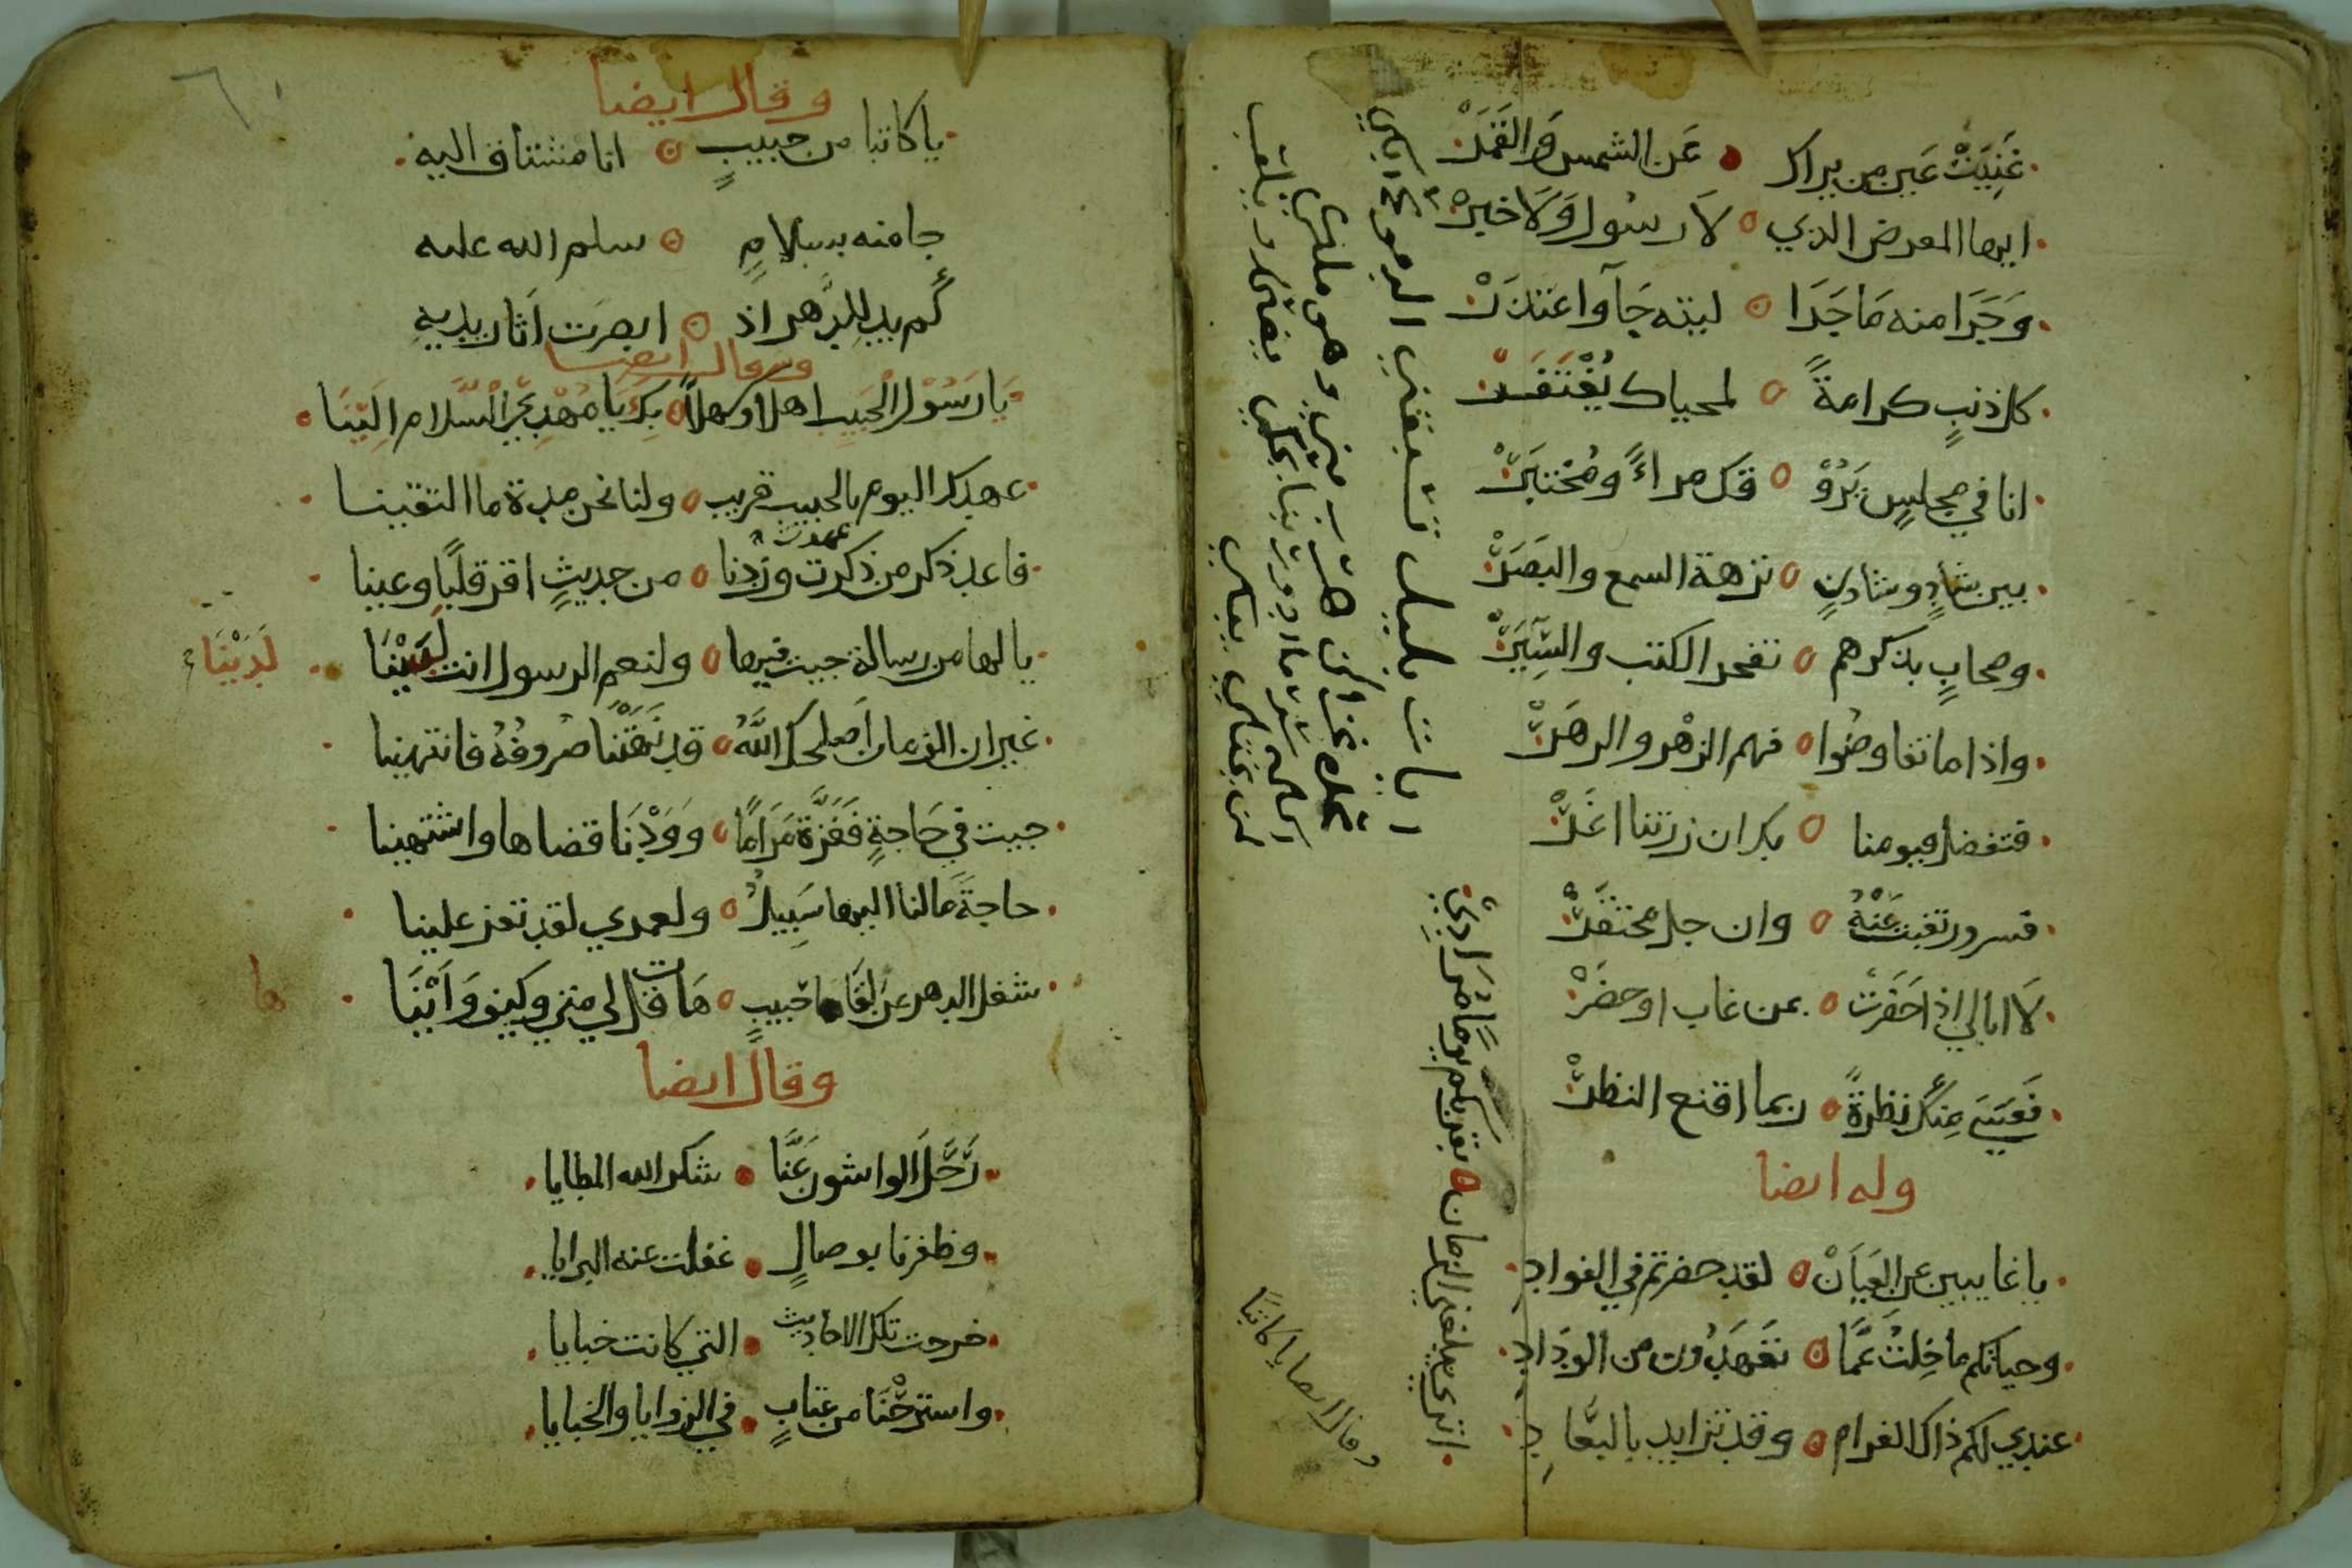 غَنِيَتْ عَين من يراك • عَن الشمس وَالقَمَرْ
ايها المعرض الذي ○ لا رسُول وَلَا خبرْ
وَجَرَا منه مَا جَرَا ○ ليته جَآ واعتذرْ
كل ذنبٍ كرامةً ○ لمحياك يُغْتَفَرْ
انا في مجلسٍ يَرُوْ ○ قك مراءً ومُخْتبَرْ
بين شادٍ وشادنٍ ○ نزهة السمع والبَصَرْ
وصحابٍ بذكرهم ○ تفخر الكتب والسِّيَرْ
واذا ما تفاوضُوا ○ فهم الزهْر والزهَرْ
فتفضل فيومنا ○ بك ان زرتنا اغَرْ
فسرور تغبت عَنْهُ ○ وان جل محتقَرْ
لَا ابالي اذا حَضَرتَ ○ بمن غاب او حضَرْ
فعَسَى مِنك نظرةً ○ ربما اقنع النظرْ
وله ايضا
يا غايبين عن العَيَانْ ○ لقد حضرتم في الفواد
وحياتكم ما حِلتُ عَمَّا ○ تَعْهَدُون من الودَاد
عندي لكم ذاك الغرام ○ وقد تزايد بالبعَاد
اترى يبلغني الزمان ○ بقربكم يوما مُرَادِيْ
وقال ايضا يا كاتبًا
وقال ايضا
يا كاتبا من حبيبٍ ○ انا مشتاق اليه
جا منه بسلامٍ ○ سلم الله عليه
كم يدٍ للدَّهر اذ ○ ابصَرَت اثار يديهِ
وقال ايضا
يَا رَسُوْل الحَبيب اهلا وسهلاً ○ بِكَ يَا مُهْدِيَ السَّلام اِلَيْنَا
عهدك اليوم بالحبيب قريب ○ ولنا نحن مدة ما التقينا
فاعد ذكر من ذكرت وزدنا ○ من حديثٍ اقر قلبًا وعينا
عهدت
يا لها من رسالة جيت فيها ○ ولنعم الرسول انت لَدَيْنَا
لَدَيْنَا
غير ان الزمان اَصلحك اللَّهُ ○ قد نَهَتْنَا صُروفُهُ فانتهينا
جيت في حَاجةٍ فَعَزَّة مَرَامًا ○ وَوَدْنَا قضاها واشتهينا
حاجةً مَا لنا اليها سَبِيلٌ ○ ولعمري لقد تعز علينا
شغل الدهر عن لِقَا حَبيبٍ ○ هَات قل لي متى وكيف وَاَيْنَا
ها
وقال ايضا
رَحَّلَ الواشون عَنَّا • شكر الله المطايا
وظفرنا بوصالٍ • غفلت عنه البرايا
خرجت تلك الاحاديث • التي كانت خبايا
واسترَحْنَا من عتابٍ • في الزوايا والخبايا